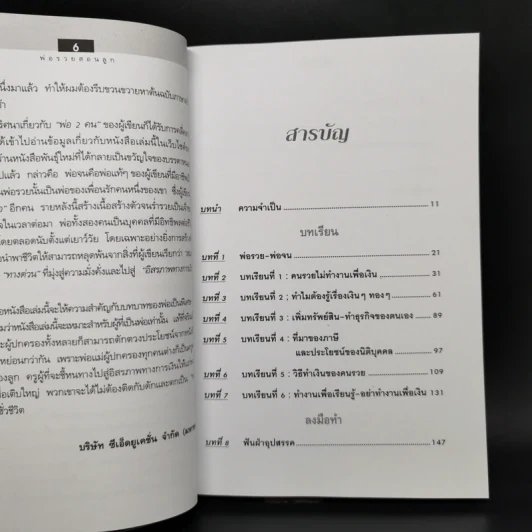 6
พ่อรวยสอนลูก
นึ่งมาแล้ว ทำให้ผมต้องรีบขวนขวายหาต้นฉบับภาษา
ริศนาเกี่ยวกับ "พ่อ 2 คน" ของผู้เขียนก็ได้รับการ
ด้เข้าไปอ่านข้อมูลเกี่ยวกับหนังสือเล่มนี้ในเว็บไซต์
ร้านหนังสือพันธุ์ใหม่ที่ได้กลายเป็นขวัญใจของบรรดา
ปแล้ว กล่าวคือ พ่อจนคือพ่อแท้ๆ ของผู้เขียนที่มีอาชีพ
พ่อรวยนั้นเป็นพ่อของเพื่อนรักคนหนึ่งของเขา ซึ่งผู้เขียน
อีกคน รายหลังนี้สร้างเนื้อสร้างตัวจนร่ำรวยเป็น
ในเวลาต่อมา พ่อทั้งสองคนเป็นบุคคลที่มีอิทธิพลต่อ
โดยตลอดนับตั้งแต่เยาว์วัย โดยเฉพาะอย่างยิ่งการสร้าง
นำพาชีวิตให้สามารถหลุดพ้นจากสิ่งที่ผู้เขียนเรียกว่า
"ทางด่วน" ที่มุ่งสู่ความมั่งคั่งและไปสู่ "อิสรภาพทางการ
หนังสือเล่มนี้จะให้ความสำคัญกับบทบาทของพ่อเป็นพิเศษ
ามว่าหนังสือเล่มนี้จะเหมาะสำหรับผู้ที่เป็นพ่อเท่านั้น
ผู้ปกครองทั้งหลายก็สามารถตักตวงประโยชน์จากหนังสือ
หย่อนกว่ากัน เพราะพ่อแม่ผู้ปกครองทุกคนต่างก็เป็นครู
องลูก ครูผู้ที่จะชี้หนทางไปสู่อิสรภาพทางการเงินให้แก่
อเติบใหญ่ พวกเขาจะได้ไม่ต้องติดกับดักและตกเป็น
ชั่วชีวิต
บริษัท ซีเอ็ดยูเคชั่น จำกัด
สารบัญ
บทนำ ความจำเป็น 11
บทเรียน
บทที่ 1 พ่อรวย-พ่อจน 21
บทที่ 2 บทเรียนที่ 1 : คนรวยไม่ทำงานเพื่อเงิน 31
บทที่ 3 บทเรียนที่ 2 : ทำไมต้องรู้เรื่องเงินๆ ทองๆ 61
บทที่ 4 บทเรียนที่ 3 : เพิ่มทรัพย์สิน-ทำธุรกิจของตนเอง 89
บทที่ 5 บทเรียนที่ 4 : ที่มาของภาษี
และประโยชน์ของนิติบุคคล 97
บทที่ 6 บทเรียนที่ 5 : วิธีทำเงินของคนรวย 109
บทที่ 7 บทเรียนที่ 6 : ทำงานเพื่อเรียนรู้-อย่าทำงานเพื่อเงิน 131
ลงมือทำ
บทที่ 8 ฟันฝ่าอุปสรรค 147